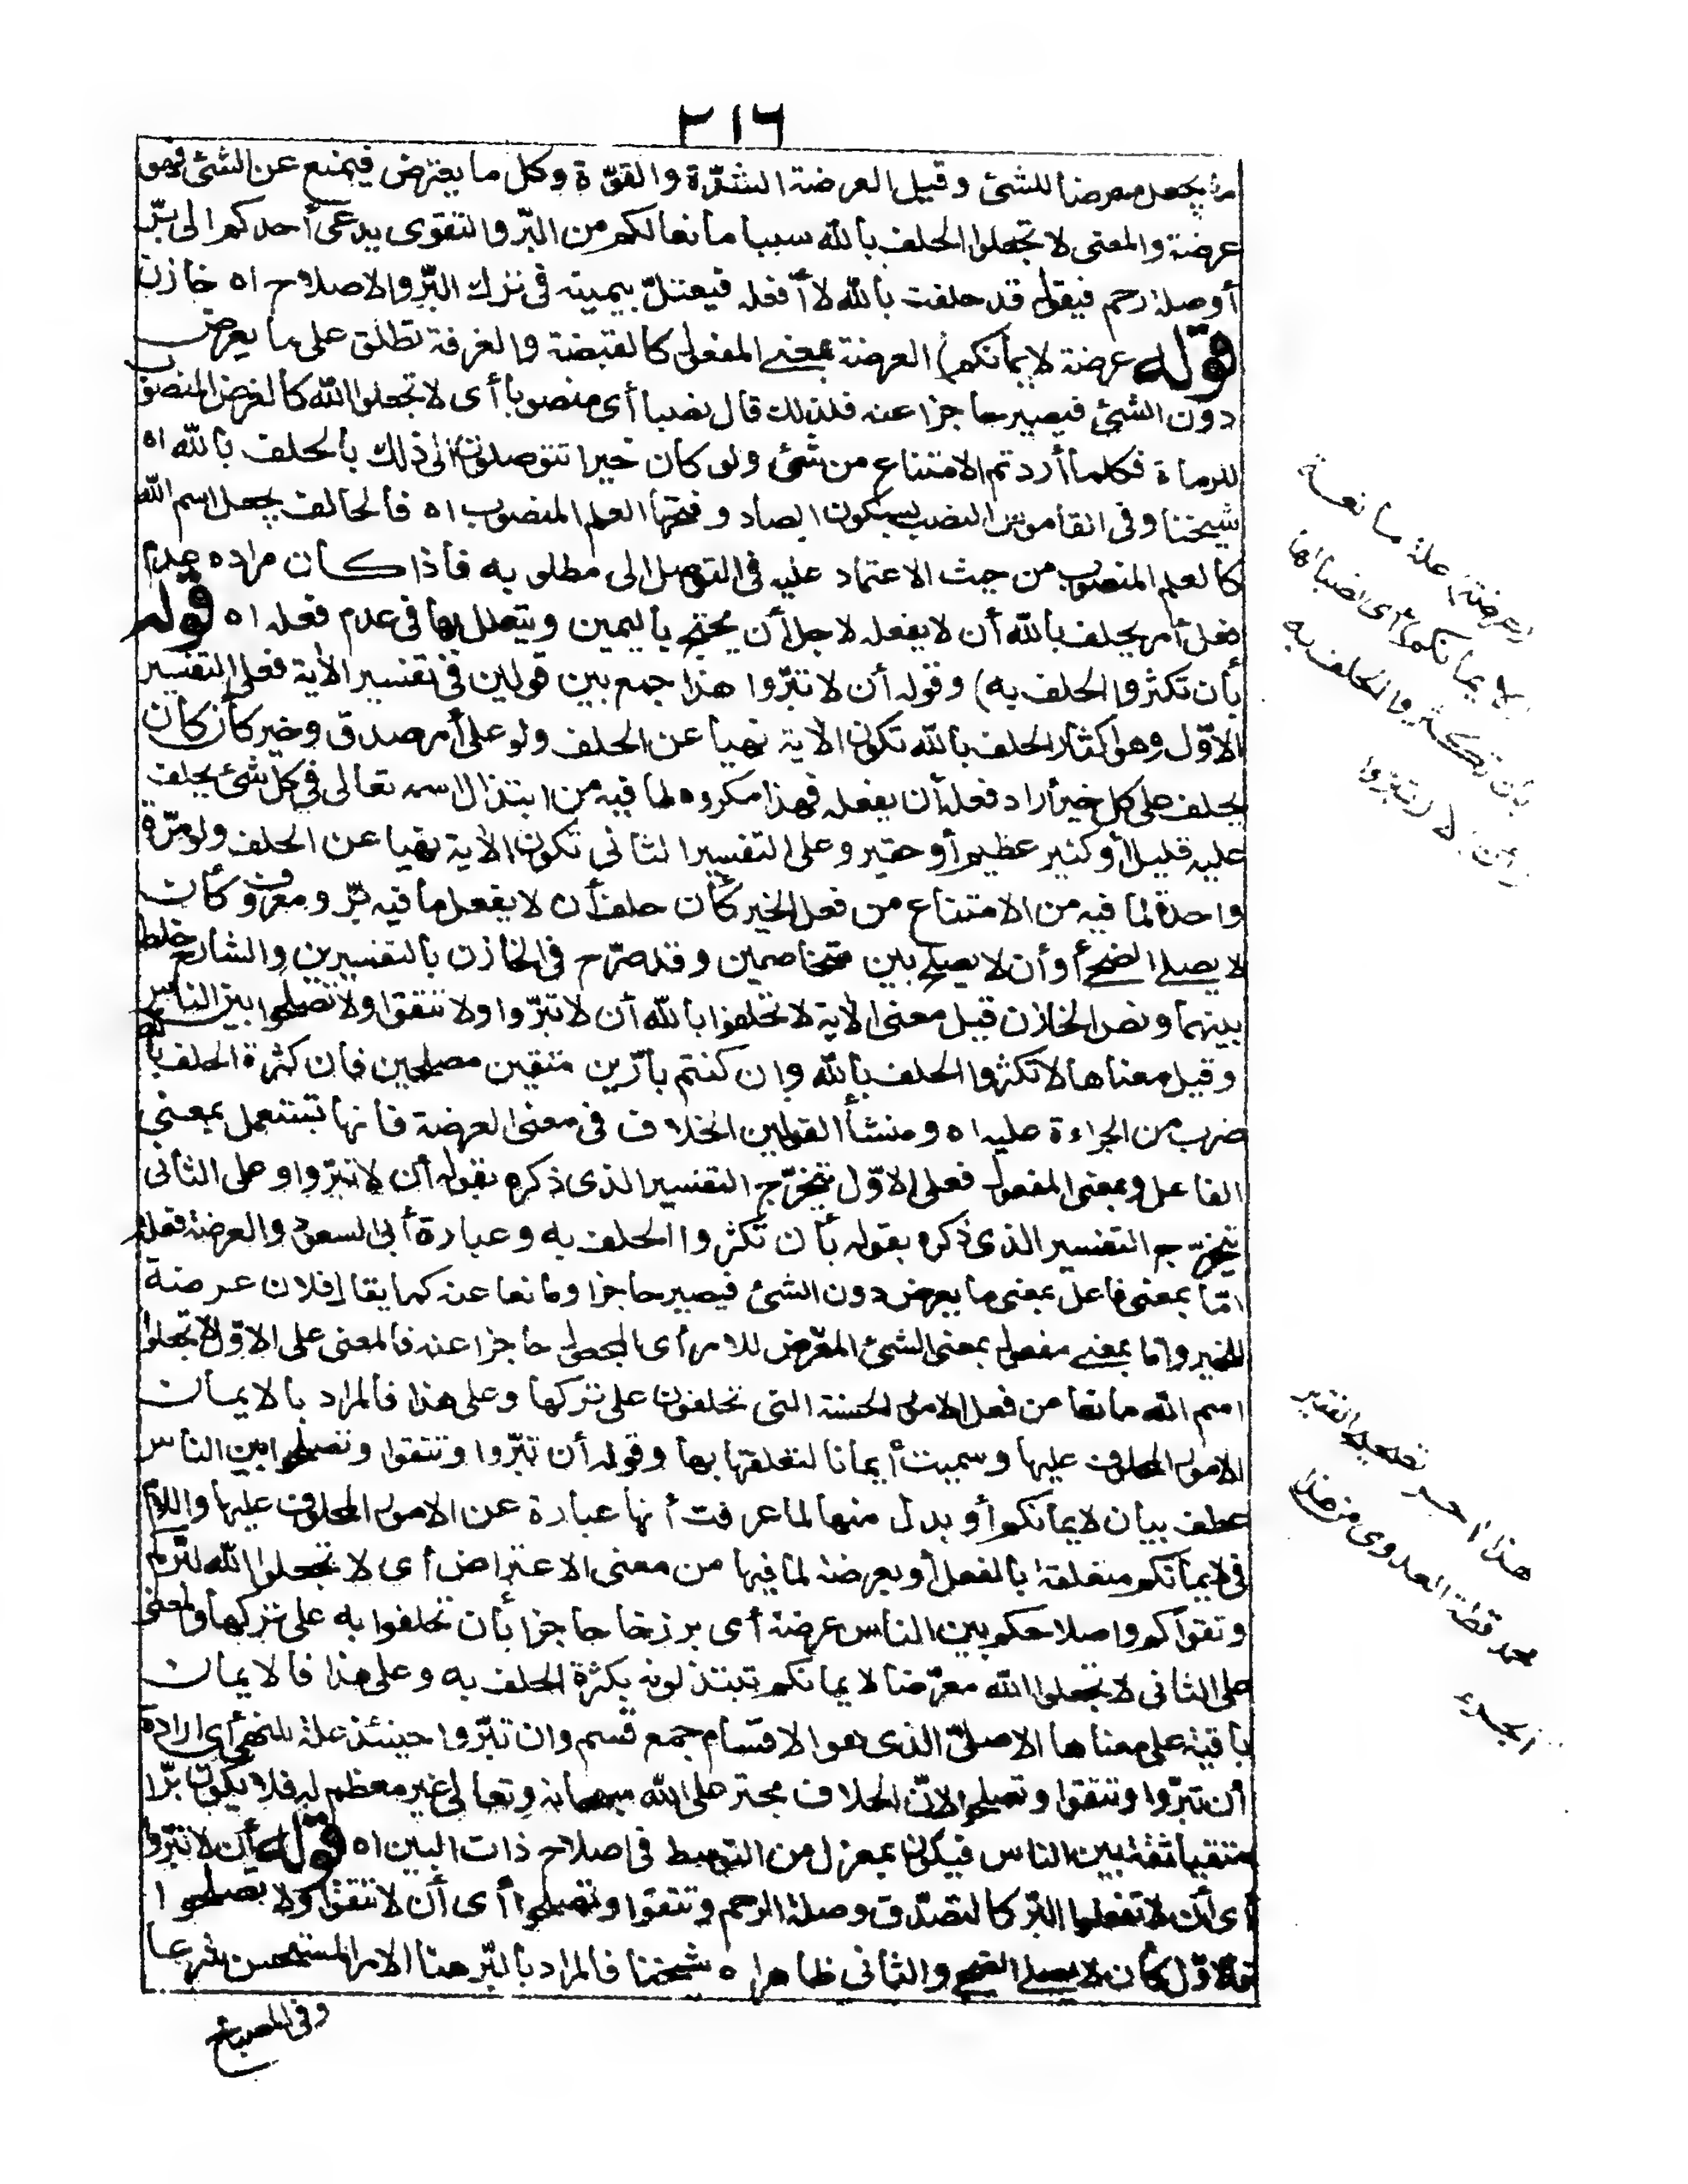 ٢١٦
ما يجعل معرضا للشئ وقيل العرضة الشدّة والقوّة وكل ما يعترض فيمنع عن الشئ فهو
عرضة والمعنى لا تجعلوا الحلف بالله سببا مانعا لكم من البرّ والتقوى يدعى أحدكم الى برّ
أوصلة رحم فيقول قد حلفت بالله لا أفعله فيعتلّ بيمينه فى ترك البرّ والاصلاح اه خازن
قوله عرضة لايمانكم) العرضة بمعنى المفعول كالقبضة والغرفة تطلق على ما يعرض
دون الشئ فيصير حاجزا عنه فلذلك قال نصبا أى منصوبا أى لا تجعلوا الله كالغرض المنصوب
للرماة فكلما أردتم الامتناع من شئ ولو كان خيرا تتوصلون الى ذلك بالحلف بالله اه
شيخنا وفى القاموس النصب بسكون الصاد وفتحها العلم المنصوب اه فالحالف يجعل اسم الله
كالعلم المنصوب من حيث الاعتماد عليه فى التوصل الى مطلوبه فاذا كان مراده عدم
فعل أمر يحلف بالله أن لا يفعله لاجل أن يحتج باليمين ويتعلل بها فى عدم فعله اه قوله
بأن تكثروا الحلف به) وقوله أن لا تبرّوا هذا جمع بين قولين فى تفسير الآية فعلى التفسير
الاوّل وهو اكثار الحلف بالله تكون الآية نهيا عن الحلف ولو على أمر صدق وخير كأن كان
يحلف على كل خير أراد فعله أن يفعله فهذا مكروه لما فيه من ابتذال اسمه تعالى فى كلّ شئ يحلف
عليه قليل أو كثير عظيم أو حقير وعلى التفسير الثانى تكون الآية نهيا عن الحلف ولو مرّة
واحدة لما فيه من الامتناع من فعل الخير كأن حلف أن لا يفعل ما فيه برّ ومعروف كأن
لا يصلى الضحى أو أن لا يصلح بين متخاصمين وقد صرّح فى الخازن بالتفسيرين والشارح خلط
بينهما ونص الخازن قيل معنى الآية لا تحلفوا بالله أن لا تبرّوا ولا تتقوا ولا تصلحوا بين الناس
وقيل معناها لا تكثروا الحلف بالله وان كنتم بارّين متقين مصلحين فان كثرة الحلف بالله
ضرب من الجراءة عليه اه ومنشأ القولين الخلاف فى معنى العرضة فانها تستعمل بمعنى
الفاعل وبمعنى المفعول فعلى الاوّل يتخرّج التفسير الذى ذكره بقوله أن لا تبرّوا وعلى الثانى
يتخرّج التفسير الذى ذكره بقوله بأن تكثروا الحلف به وعبارة أبى السعود والعرضة فعلة
امّا بمعنى فاعل بمعنى ما يعرض دون الشئ فيصير حاجزا ومانعا عنه كما يقال فلان عرضة
للخير وامّا بمعنى مفعول بمعنى الشئ المعرّض للامر أى المجعول حاجزا عنه فالمعنى على الاوّل لا تجعلوا
اسم الله مانعا من فعل الامور الحسنة التى تحلفون على تركها وعلى هذا فالمراد بالايمان
الامور المحلوف عليها وسميت أيمانا لتعلقها بها وقوله أن تبرّوا وتتقوا وتصلحوا بين الناس
عطف بيان لايمانكم أو بدل منها لما عرفت أنها عبارة عن الامور المحلوف عليها واللام
فى لايمانكم متعلقة بالفعل أو بعرضة لما فيها من معنى الاعتراض أى لا تجعلوا الله لبرّكم
وتقواكم واصلاحكم بين الناس عرضة أى برزخا حاجزا بأن تحلفوا به على تركها والمعنى
على الثانى لا تجعلوا الله معرّضا لايمانكم تبتذلونه بكثرة الحلف به وعلى هذا فالايمان
باقية على معناها الاصلىّ الذى هو الاقسام جمع قسم وان تبرّوا حينئذ علة للنهى أى ارادة
أن تبرّوا وتتقوا وتصلحوا لانّ الحلاف مجترء على الله سبحانه وتعالى غير معظم له فلا يكون برّا
متقيا ثقة بين الناس فيكون بمعزل من التوسط فى اصلاح ذات البين اه قوله أن لا تبرّوا
أى أن لا تفعلوا البرّ كالتصدّق وصلة الرحم وتتقوا وتصلحوا أى أن لا تتقوا ولا تصلحوا
فالاوّل كأن لا يصلى الضحى والثانى ظاهر اه شيخنا فالمراد بالبرّ هنا الامر المستحسن شرعا
وفى المصباح
(عرضة) علة مانعة
لايمانكم أى نصبا لها
بأن تكثروا الحلف به
أن لا تبروا
هذا
محمد قطة العدوى من